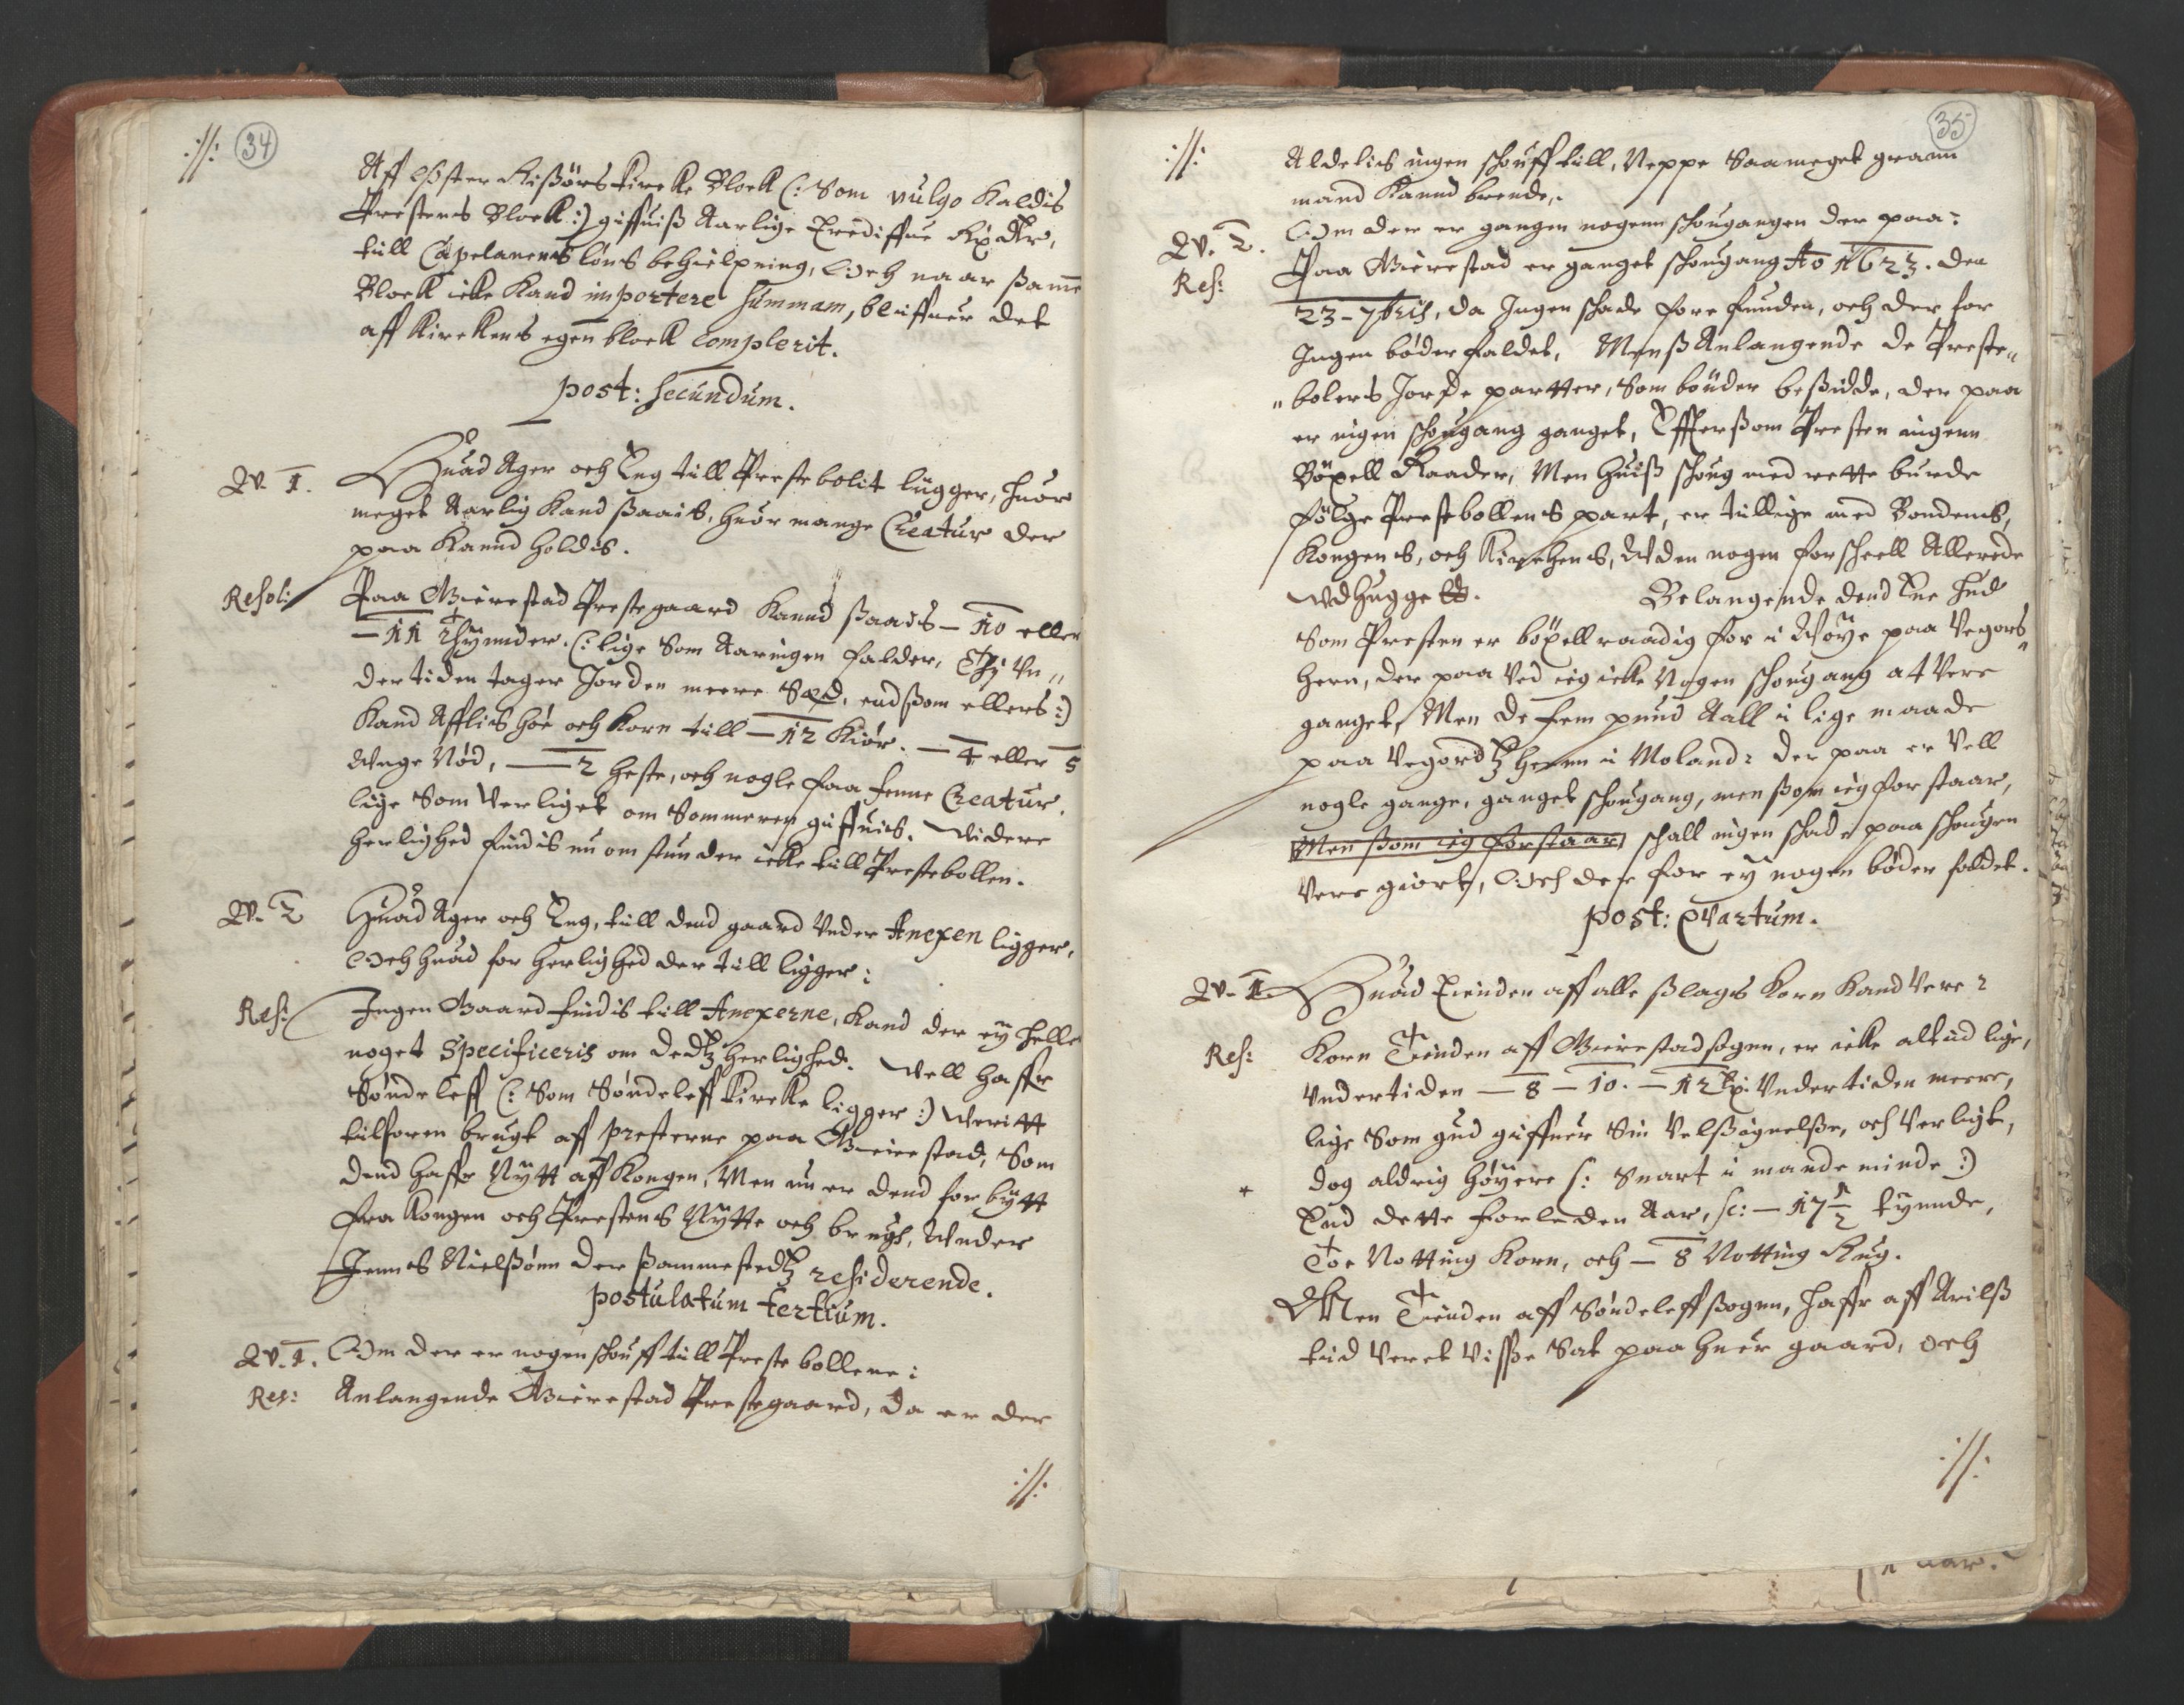 :/: 34
Aff Øster Rißørs kircke Block (: Som vulgo Kaldis
Prestens Block :) giffuiß Aarligen Trediffue Rix dlr,
till Capelanens løns behielpning, Och naar ßamme
Block icke Kand importere Summam, bliffuer det
aff Kirckens egen block complerit.
post: Secundum.
Qv. 1. Huad Ager och Eng till Prestebolit ligger, huor
meget Aarlig Kand ßaais, huor mange Creatur der
paa Kannd holdis.
Resol: Paa Gierestad Prestegaard Kannd ßaads — 10 eller
— 11 Thynnder. (: lige Som Aaringen falder, Thj Vn„
dertiden tager Jorden meere Sæd, end ßom ellers :)
Kand Afflis høe och Korn till — 12 Kiør. — 4 eller 5
Unge Nød, — 2 heste, och nogle faa fenne Creatur,
lige Som Verliget om Sommeren giffuis. Widere
herlighed findis nu om stunder icke till Prestebollen.
Qv. 2 Huad Ager och Eng, till dend gaard Under Anexen ligger,
Och huad for herlighed der till ligger:
Res: Ingen Gaard findis till Anexerne, Kand der ey heller
noget Specificeris om dedtz herlighed. Well haffr
Søndeleff (: Som Søndeleff kircke ligger :) Weritt
tilforn brugt aff presterne paa Gierestad, Som
dend haffr Nytt aff Kongen, Men nu er dend forbytt
fra Kongen och Prestens Nytte och brugh, Under
Jennes Nielßønn der ßammestedtz residerende.
postulatum tertium.
Qv. 1. Om der er nogen schouff till Preste bollene:
Res: Anlangende Gierestad Prestegaard, da er der
:/:
:/: 35
Aldelis ingen schouff till, Neppe Saa meget grann
mand Kannd brende.
Qv. 2. Om der er gangen nogenn schougangen der paa:
Res: Paa Gierestad er ganget schougang Ao 1623. den
23 - 7bris, da Ingen schade fore funden, och der for
Ingen bøder faldet, Menß Anlangende de Preste„
„bolens Jorde partter, Som bønder beßidde, der paa
er ingen schougang ganget, Effterßom Presten ingenn
Böxell Raader, Men huiß schoug med rette burde
følge Prestebollens part, er tillige med Bondens,
Kongens, och Kirchens, Uden nogen forscheell Allerede
udhugget. Belangende dend Ene hud
Som Presten er böxell raadig for i Woye paa Vegors„
heen, der paa Ved ieg icke Nogen schougang at Vere
ganget, Men de fem pund Aall i lige maade
paa Vegordtz heenn i Moland: der paa er Vell
nogle gange, ganget schougang, men ßom ieg forstaar,
Men ßom ieg forstaar schall ingen schade paa schougen
Vere giort, Och der for ey nogen bøder faldet.
post: qvartum.
Qv. 1. Huad Tienden aff alle ßlags Korn Kand Vere?
Res: Korn Tienden aff Gierestad ßogen, er icke altid lige,
Undertiden — 8 — 10. — 12 Undertiden meere,
lige Som gud giffuer Sin Velßignelße, och Verligt,
dog aldrig høyere (: Snart i mande minde :)
End dette forleden Aar, sc: — 17½ tynnde,
Toe Notting Korn, och — 8 Notting Rug.
Men Tienden aff Søndeleff ßogen, haffr aff Arilß
tiid Veret Visße Sat paa huer gaard, och
:/: